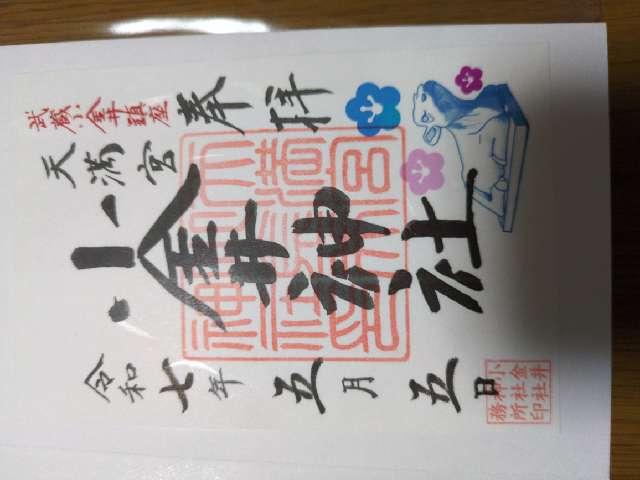 奉拝
武蔵小金井鎮座
天満宮
小金井神社
令和七年五月五日
小金井
神社社
務所印